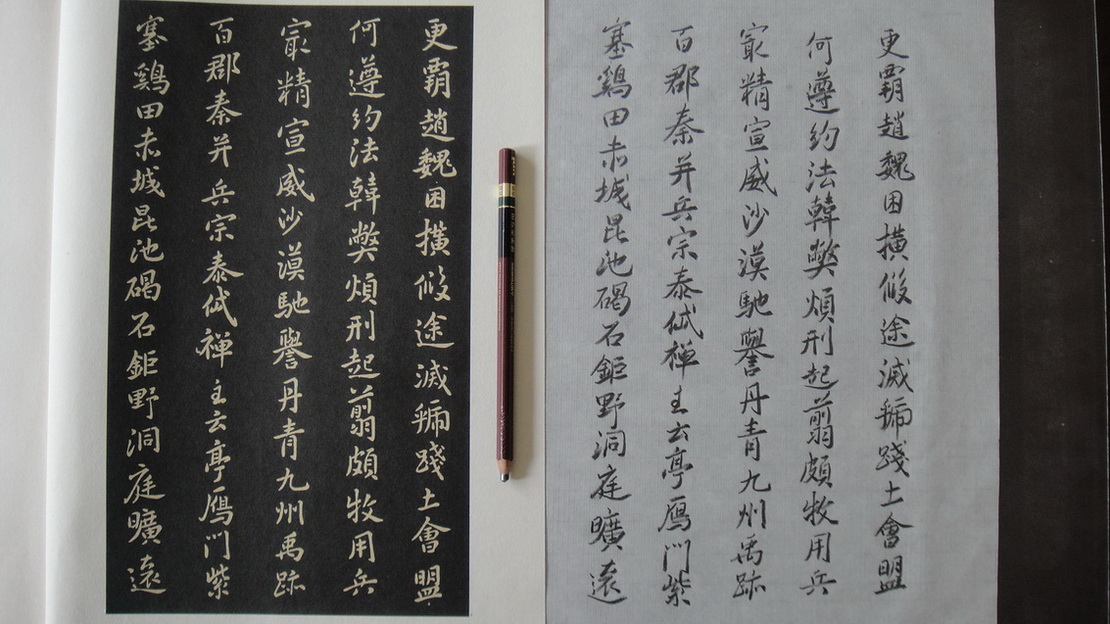 更霸趙魏困橫假途滅虢踐土會盟
何遵約法韓弊煩刑起翦頗牧用兵
㝡精宣威沙漠馳譽丹青九州禹跡
百郡秦并岳宗泰岱禪主云亭鴈門紫
塞鷄田赤城昆池碣石鉅野洞庭曠遠
更霸趙魏困橫假途滅虢踐土會盟
何遵約法韓弊煩刑起翦頗牧用兵
㝡精宣威沙漠馳譽丹青九州禹跡
百郡秦并岳宗泰岱禪主云亭鴈門紫
塞鷄田赤城昆池碣石鉅野洞庭曠遠